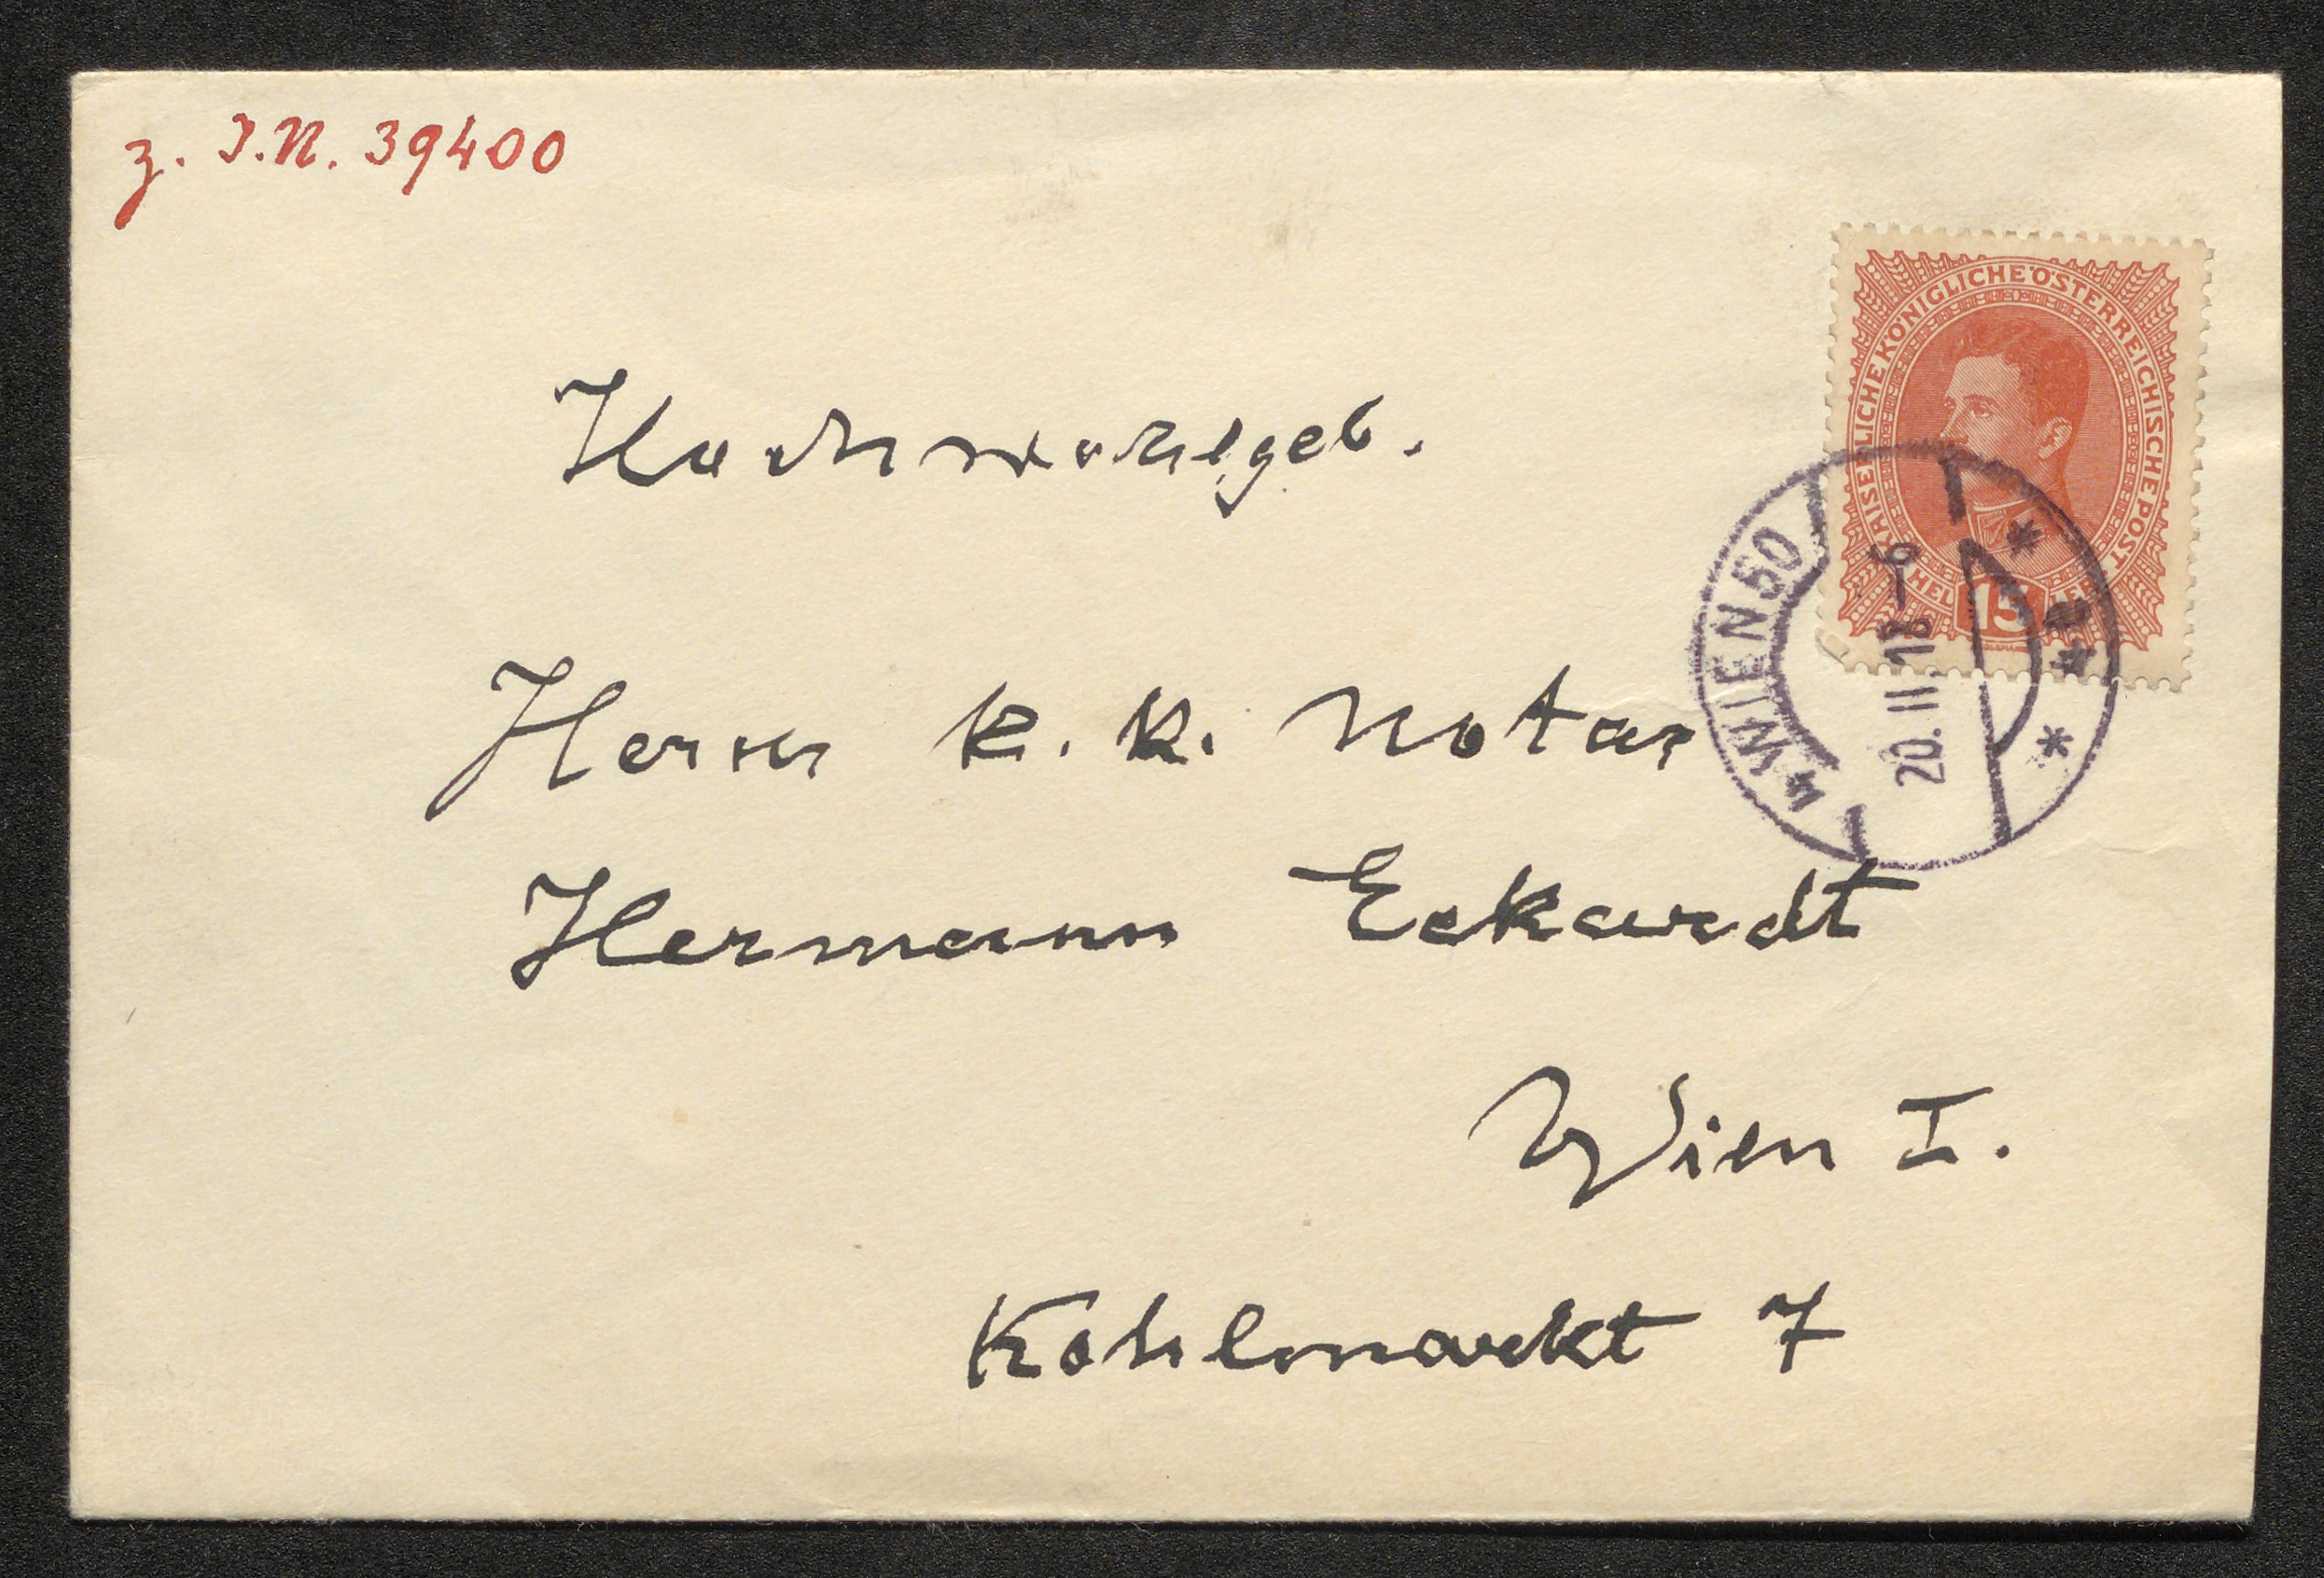 z. I.N. 39400
KAISERLICHE KÖNIGLICHE ÖSTERREICHISCHE POST
HELLER
15
4 WIEN 50
20.II.18-6
Hochwohlgeb.
Herrn k. k. Notar
Hermann Eckardt
Wien I.
Kohlmarkt 7